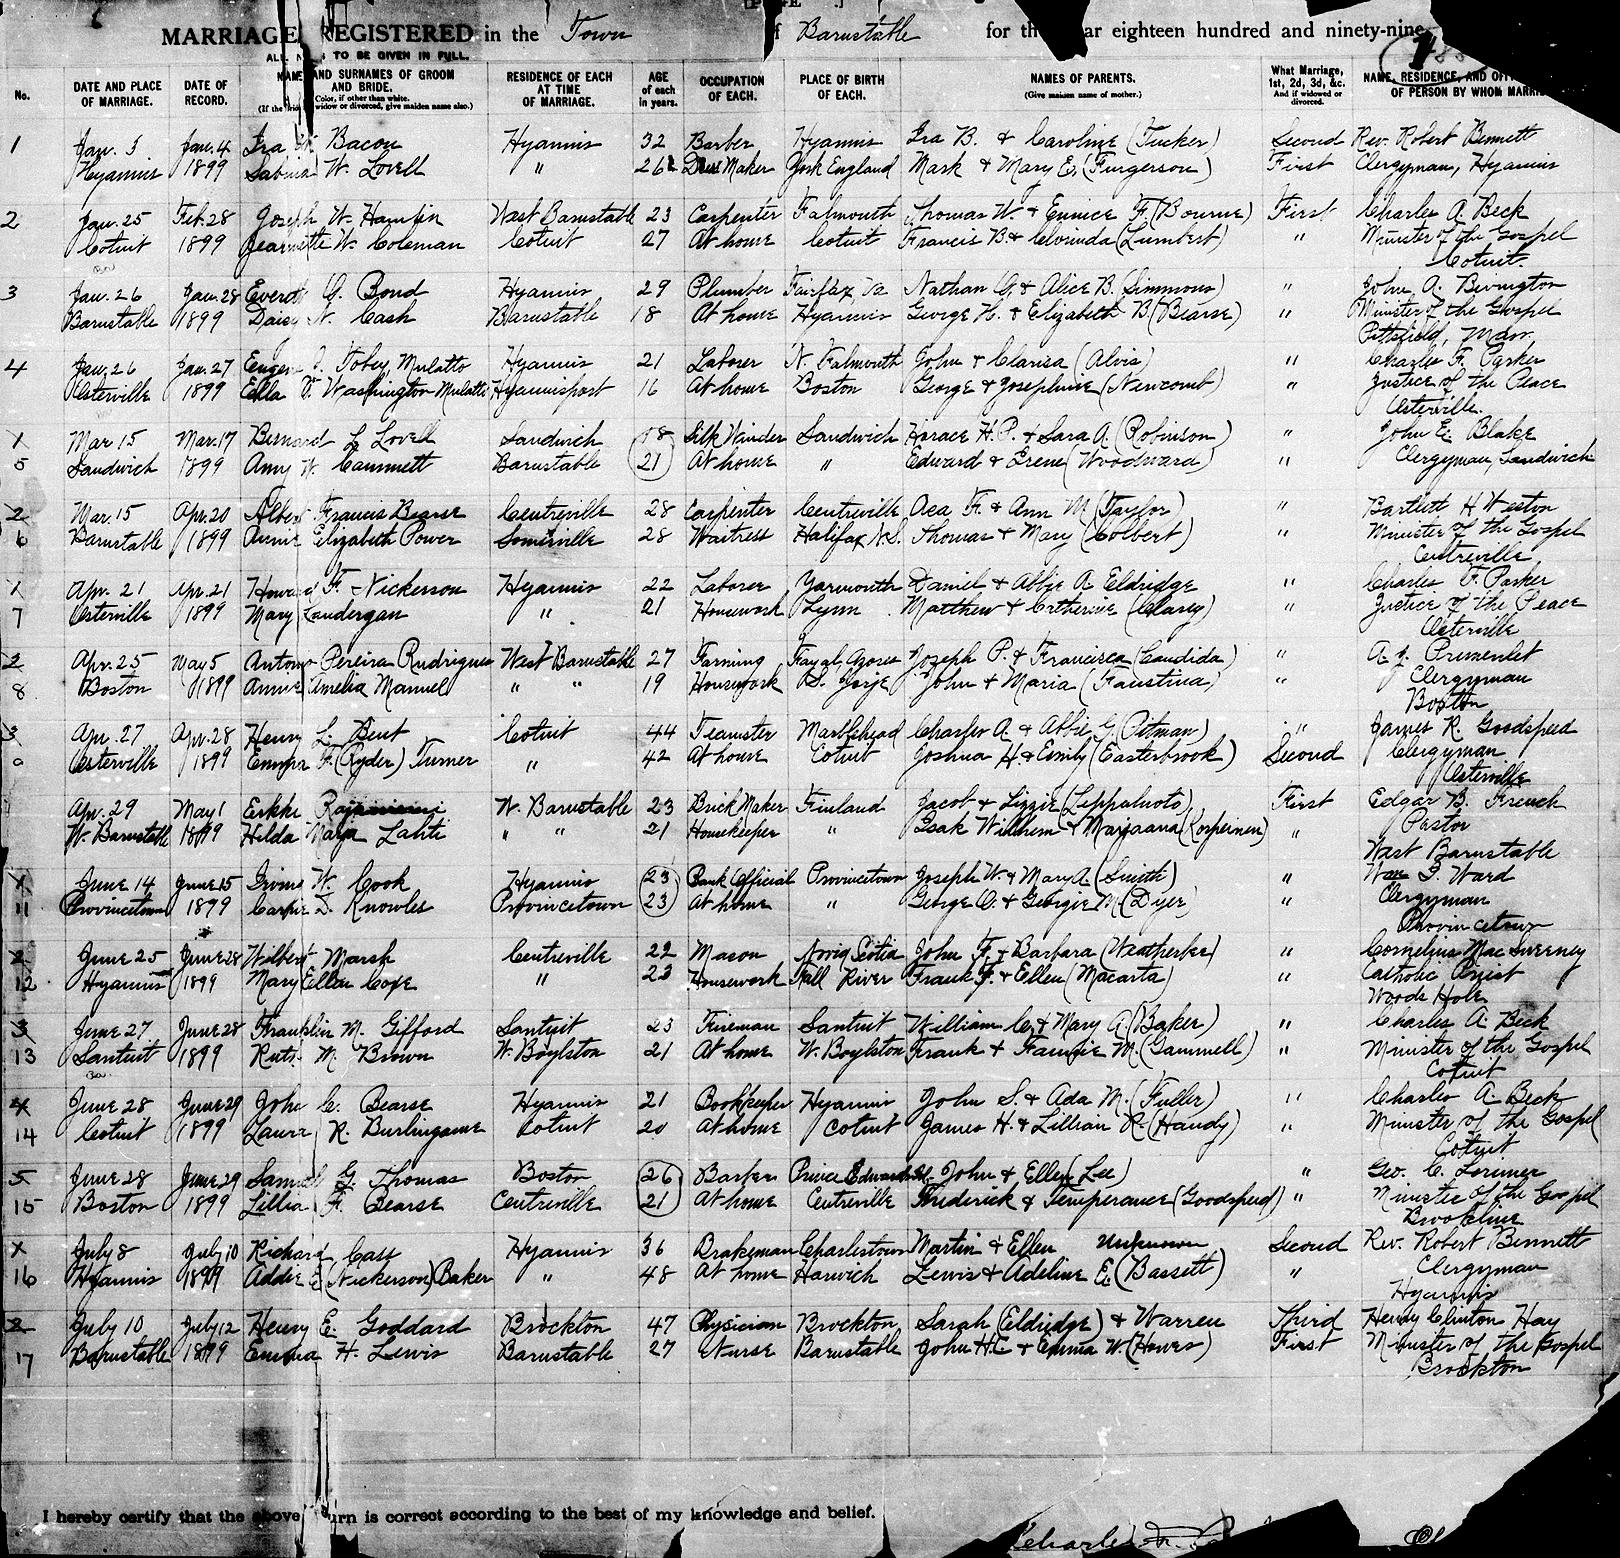 MARRIAGE REGISTERED in the Town of Barnstable for the year eighteen hundred and ninety-nine
ALL NAMES TO BE GIVEN IN FULL.
No. DATE AND PLACE OF MARRIAGE. DATE OF RECORD. NAMES AND SURNAMES OF GROOM AND BRIDE. Color, if other than white. (If the bride is widow or divorced, give maiden name also.) RESIDENCE OF EACH AT TIME OF MARRIAGE. AGE of each in years. OCCUPATION OF EACH. PLACE OF BIRTH OF EACH. NAMES OF PARENTS. (Give maiden name of mother.) What Marriage, 1st, 2d, 3d, &c. And if widowed or divorced. NAME, RESIDENCE, AND OF PERSON BY WHOM MARRI
1 Jan. 3 Jan. 4 Ira Bacon Hyannis 32 Barber Hyannis Ira B. & Caroline (Tucker) Second Rev. Robert Bennett
Hyannis 1899 Sabina W. Lovell " 26 Dress Maker York England Mark & Mary E. (Furgerson) First Clergyman, Hyannis
2 Jan. 25 Feb. 28 Joseph W. Hamlin West Barnstable 23 Carpenter Falmouth Thomas W. & Eunice F. (Bourne) First Charles A. Beck
Cotuit 1899 Jeannette W. Coleman Cotuit 27 At home Cotuit Francis B. & Clorinda (Lumbert) " Minister of the Gospel
Cotuit.
3 Jan. 26 Jan. 28 Everett G. Bond Hyannis 29 Plumber Fairfax Va Nathan G. & Alice B. (Simmons) " John A. Bevington
Barnstable 1899 Daisy N. Cash Barnstable 18 At home Hyannis George H. & Elizabeth B. (Bearse) " Minister of the Gospel
Pittsfield, Mass.
4 Jan. 26 Jan. 27 Eugene Tobey, Mulatto Hyannis 21 Laborer N. Falmouth John & Clarisa (Alvis) " Charles F. Parker
Osterville 1899 Ella V. Washington Mulatto Hyannisport 16 At home Boston George & Josephine (Newcomb) " Justice of the Peace
Osterville.
1 Mar 15 Mar. 17 Bernard L. Lovell Sandwich 18 Silk Winder Sandwich Horace H. P. & Sara A. (Robinson) " John E. Blake
5 Sandwich 1899 Amy W. Cammett Barnstable 21 At home " Edward & Irene (Woodward) " Clergyman, Sandwich
2 Mar. 15 Apr. 20 Albert Francis Bearse Centreville 28 Carpenter Centreville Asa F. & Ann M. (Taylor) " Bartlett H Weston
6 Barnstable 1899 Annie Elizabeth Power Somerville 28 Waitress Halifax N.S. Thomas & Mary (Colbert) " Minister of the Gospel
Centreville
1 Apr. 21 Apr. 21 Howard F. Nickerson Hyannis 22 Laborer Yarmouth Daniel & Abbie A. Eldridge " Charles F. Parker
7 Osterville 1899 Mary Landergan " 21 Housework Lynn Matthew & Catherine (Clarey) " Justice of the Peace
Osterville
2 Apr. 25 May 5 Antone Pereira Rudrigues West Barnstable 27 Farming Fayal, Azores Jozeph P. & Francisca (Candida) "
8 Boston 1899 Annie Amelia Manuel " " 19 Housework S. Jorje John & Maria (Faustina) " Clergyman
Boston
3 Apr. 27 Apr. 28 Henry L. Bent Cotuit 44 Teamster Marblehead Charles A. & Abbie G. (Pitman) " James R. Goodspeed
Osterville 1899 Emma F. (Ryder) Turner " 42 At home Cotuit Joshua H. & Emily (Easterbrook) Second Clergyman
Osterville
Apr. 29 May 1 Erkki W. Barnstable 23 Brick Maker Finland Jacob & Lizzie (Leppaluoto) First Edgar B. French
W. Barnstable 1899 Hilda Marja Lahti " " 21 Housekeeper " Isak Wilhem & Marjaana " Pastor
West Barnstable
1 June 14 June 15 Irving W. Cook Hyannis 23 Bank Official Provincetown Joseph W. & Mary A. (Smith) " Ward
11 Provincetown 1899 Carrie D. Knowles Provincetown 23 At home " George O. & Georgie M. (Dyer) " Clergyman
Provincetown
2 June 25 June 28 Wilbert Marsh Centreville 22 Mason Nova Scotia John F. & Barbara (Weatherbee) " Cornelius MacSweeney
12 Hyannis 1899 Mary Ellen Cope " 23 Housework Fall River Frank F. & Ellen (Macarta) " Catholic Priest
Woods Hole
3 June 27 June 28 Franklin M. Gifford Santuit 23 Fireman Santuit William C. & Mary A. (Baker) " Charles A. Beck
13 Santuit 1899 Ruth M. Brown W. Boylston 21 At home W. Boylston Frank & Fannie M. (Gammell) " Minister of the Gospel
Cotuit
4 June 28 June 29 John C. Bearse Hyannis 21 Bookkeeper Hyannis John S. & Ada M. (Fuller) " Charles A. Beck
14 Cotuit 1899 Laura R. Burlingame Cotuit 20 At home Cotuit James H. & Lillian R. (Handy) " Minister of the Gospel
Cotuit
5 June 28 June 29 Samuel G. Thomas Boston 26 Barber Prince Edwards Id. John & Ellen (Lee) " Geo. C. Lorimer
15 Boston 1899 Lillian F. Bearse Centreville 21 At home Centreville Frederick & Temperance (Goodspeed) " Minister of the Gospel
Brookline
1 July 8 July 10 Richard Cass Hyannis 36 Brakeman Charlestown Martin & Ellen Unknown Second Rev. Robert Bennett
16 Hyannis 1899 Addie E. (Nickerson) Baker " 48 At home Harwich Lewis & Adeline E. (Bassett) " Clergyman
Hyannis
2 July 10 July 12 Henry E. Goddard Brockton 47 Physician Brockton Sarah (Eldridge) & Warren Third Henry Clinton Hay
17 Barnstable 1899 Emma H. Lewis Barnstable 27 Nurse Barnstable John H.C. & Emma W. (Howes) First Minister of the Gospel
Brockton
I hereby certify that the above return is correct according to the best of my knowledge and belief.
Charles F.